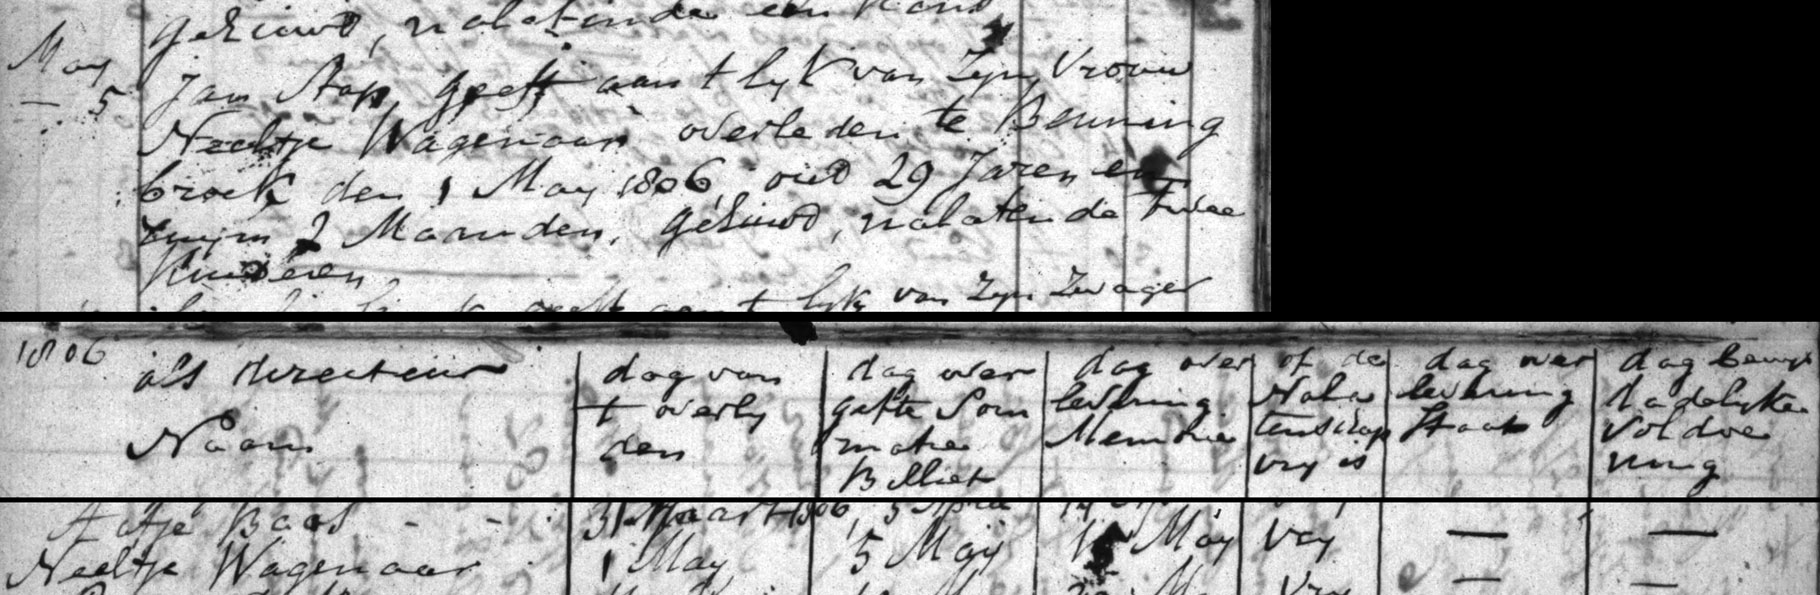 gehuwd, nalatende een kind
May
— 5
Jan Stap, geeft aan t lyk van Zyn Vrouw
Neeltje Wagenaar overleden te Benning
broek den 1 May 1806 oud 29 Jaren en
ruym 2 Maanden, gehuwd, nalatende twee
kinderen
geeft aan t lyk van Zyn Zwager
1806
als directeur
Naam
dag van
t overly
den
dag over
gifte Som
matie
Billiet
dag over
levering
Memorie
of de
Nala
tenschap
vry is
dag over
levering
Staat
dag bewys
dadelyke
voldoe
ning
Aafje Baas - - 31 Maart 1806, 5 April
Neeltje Wagenaar 1 May 5 Maÿ Maÿ vry — —